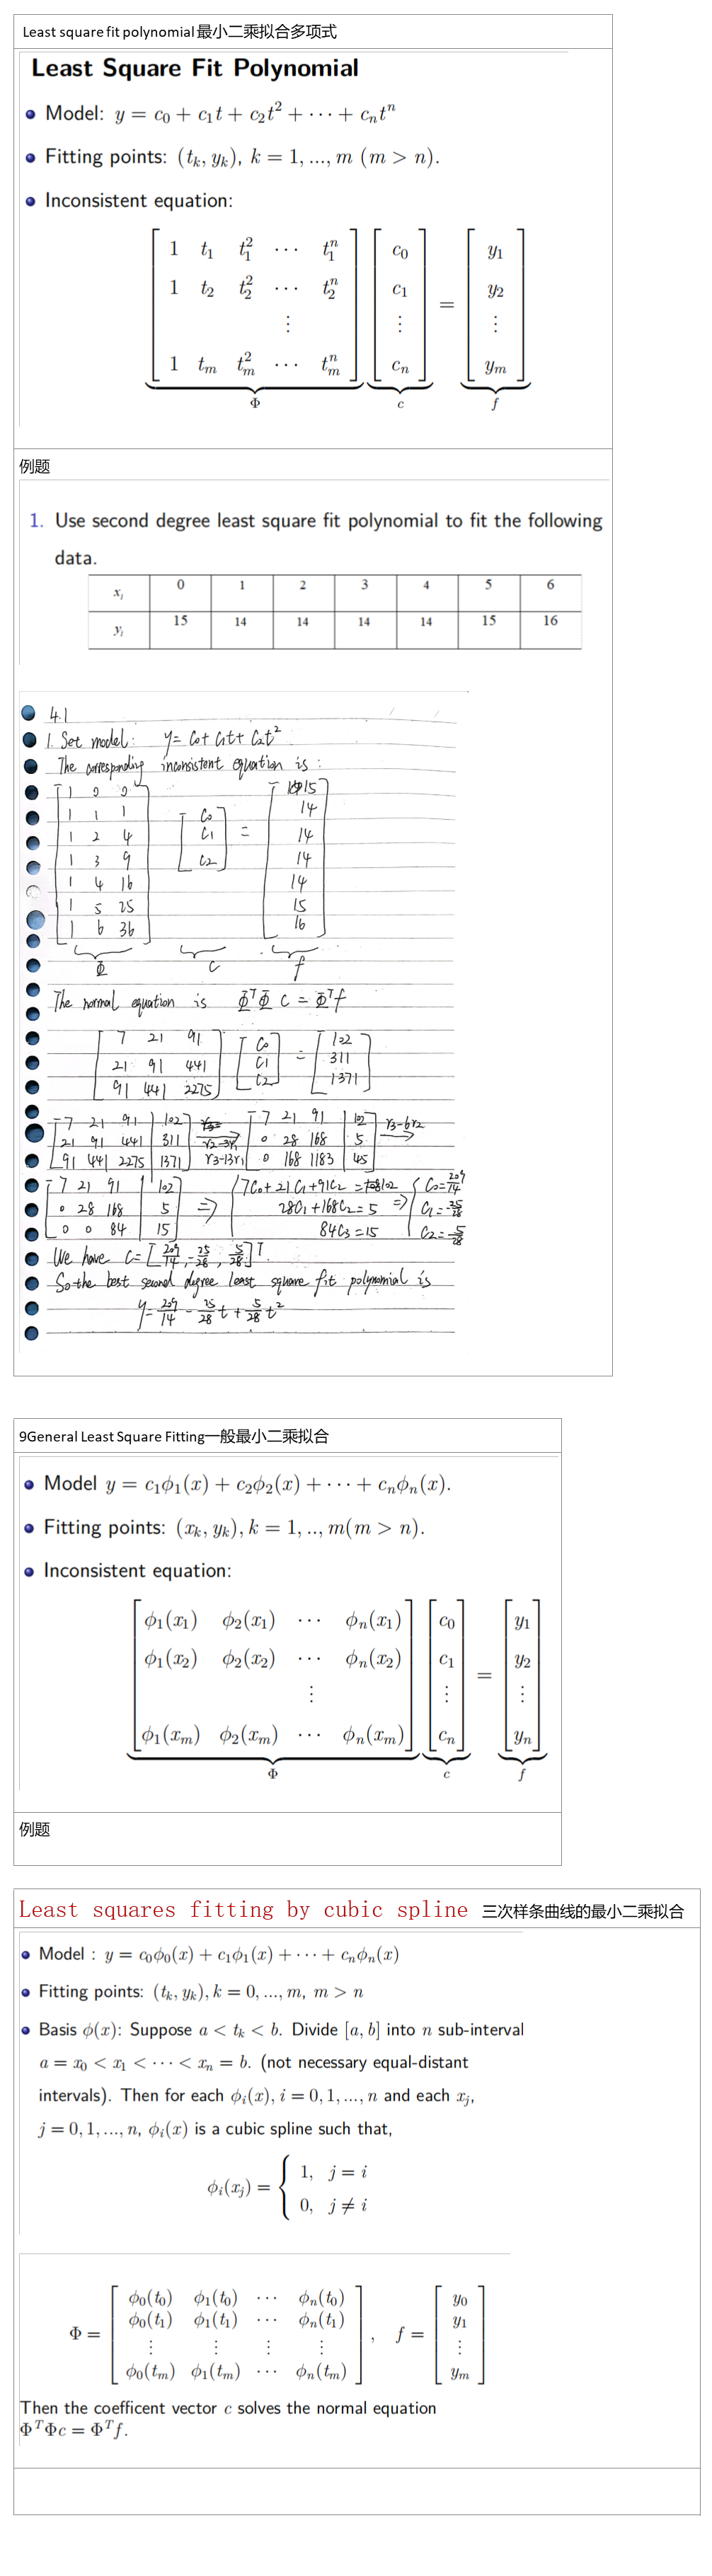 Least square fit polynomial最小二乘拟合多项式
Least Square Fit Polynomial
Model: y = c₀ + c₁t + c₂t² + ⋯ + cₙtⁿ
Fitting points: (tₖ, yₖ), k = 1, ..., m (m > n).
Inconsistent equation:
1 t₁ t₁² ⋯ t₁ⁿ c₀ y₁
1 t₂ t₂² ⋯ t₂ⁿ c₁ y₂
⋮ ⋮ = ⋮
1 tₘ tₘ² ⋯ tₘⁿ cₙ yₘ
Φ c f
例题
1. Use second degree least square fit polynomial to fit the following
data.
xᵢ 0 1 2 3 4 5 6
yᵢ 15 14 14 14 14 15 16
4.1
1. Set model: y = c₀ + c₁t + c₂t²
The corresponding inconsistent equation is:
1 0 0 15
1 1 1 c₀ 14
1 2 4 c₁ = 14
1 3 9 c₂ 14
1 4 16 14
1 5 25 15
1 6 36 16
Φ c f
The normal equation is ΦᵀΦ c = Φᵀf
7 21 91 c₀ 102
21 91 441 c₁ = 311
91 441 2275 c₂ 1371
7 21 91 | 102 7 21 91 | 102 r3-6r2
21 91 441 | 311 r2-3r1 0 28 168 | 5
91 441 2275 | 1371 r3-13r1 0 168 1183 | 45
7 21 91 | 102 7c₀ + 21c₁ + 91c₂ = 102 c₀ = 209/14
0 28 168 | 5 ⇒ 28c₁ + 168c₂ = 5 ⇒ c₁ = -25/28
0 0 84 | 15 84c₃ = 15 c₂ = 5/28
We have c = [209/14, -25/28, 5/28]ᵀ.
So the best second degree least square fit polynomial is
y = 209/14 - 25/28 t + 5/28 t²
9General Least Square Fitting一般最小二乘拟合
Model y = c₁ϕ₁(x) + c₂ϕ₂(x) + ⋯ + cₙϕₙ(x).
Fitting points: (xₖ, yₖ), k = 1, .., m(m > n).
Inconsistent equation:
ϕ₁(x₁) ϕ₂(x₁) ⋯ ϕₙ(x₁) c₀ y₁
ϕ₁(x₂) ϕ₂(x₂) ⋯ ϕₙ(x₂) c₁ y₂
⋮ ⋮ = ⋮
ϕ₁(xₘ) ϕ₂(xₘ) ⋯ ϕₙ(xₘ) cₙ yₙ
Φ c f
例题
Least squares fitting by cubic spline 三次样条曲线的最小二乘拟合
Model : y = c₀ϕ₀(x) + c₁ϕ₁(x) + ⋯ + cₙϕₙ(x)
Fitting points: (tₖ, yₖ), k = 0, ..., m, m > n
Basis ϕ(x): Suppose a < tₖ < b. Divide [a, b] into n sub-interval
a = x₀ < x₁ < ⋯ < xₙ = b. (not necessary equal-distant
intervals). Then for each ϕᵢ(x), i = 0, 1, ..., n and each xⱼ,
j = 0, 1, ..., n, ϕᵢ(x) is a cubic spline such that,
ϕᵢ(xⱼ) = { 1, j = i
0, j ≠ i
ϕ₀(t₀) ϕ₁(t₀) ⋯ ϕₙ(t₀) y₀
Φ = ϕ₀(t₁) ϕ₁(t₁) ⋯ ϕₙ(t₁) , f = y₁
⋮ ⋮ ⋮ ⋮ ⋮
ϕ₀(tₘ) ϕ₁(tₘ) ⋯ ϕₙ(tₘ) yₘ
Then the coefficent vector c solves the normal equation
ΦᵀΦc = Φᵀf.